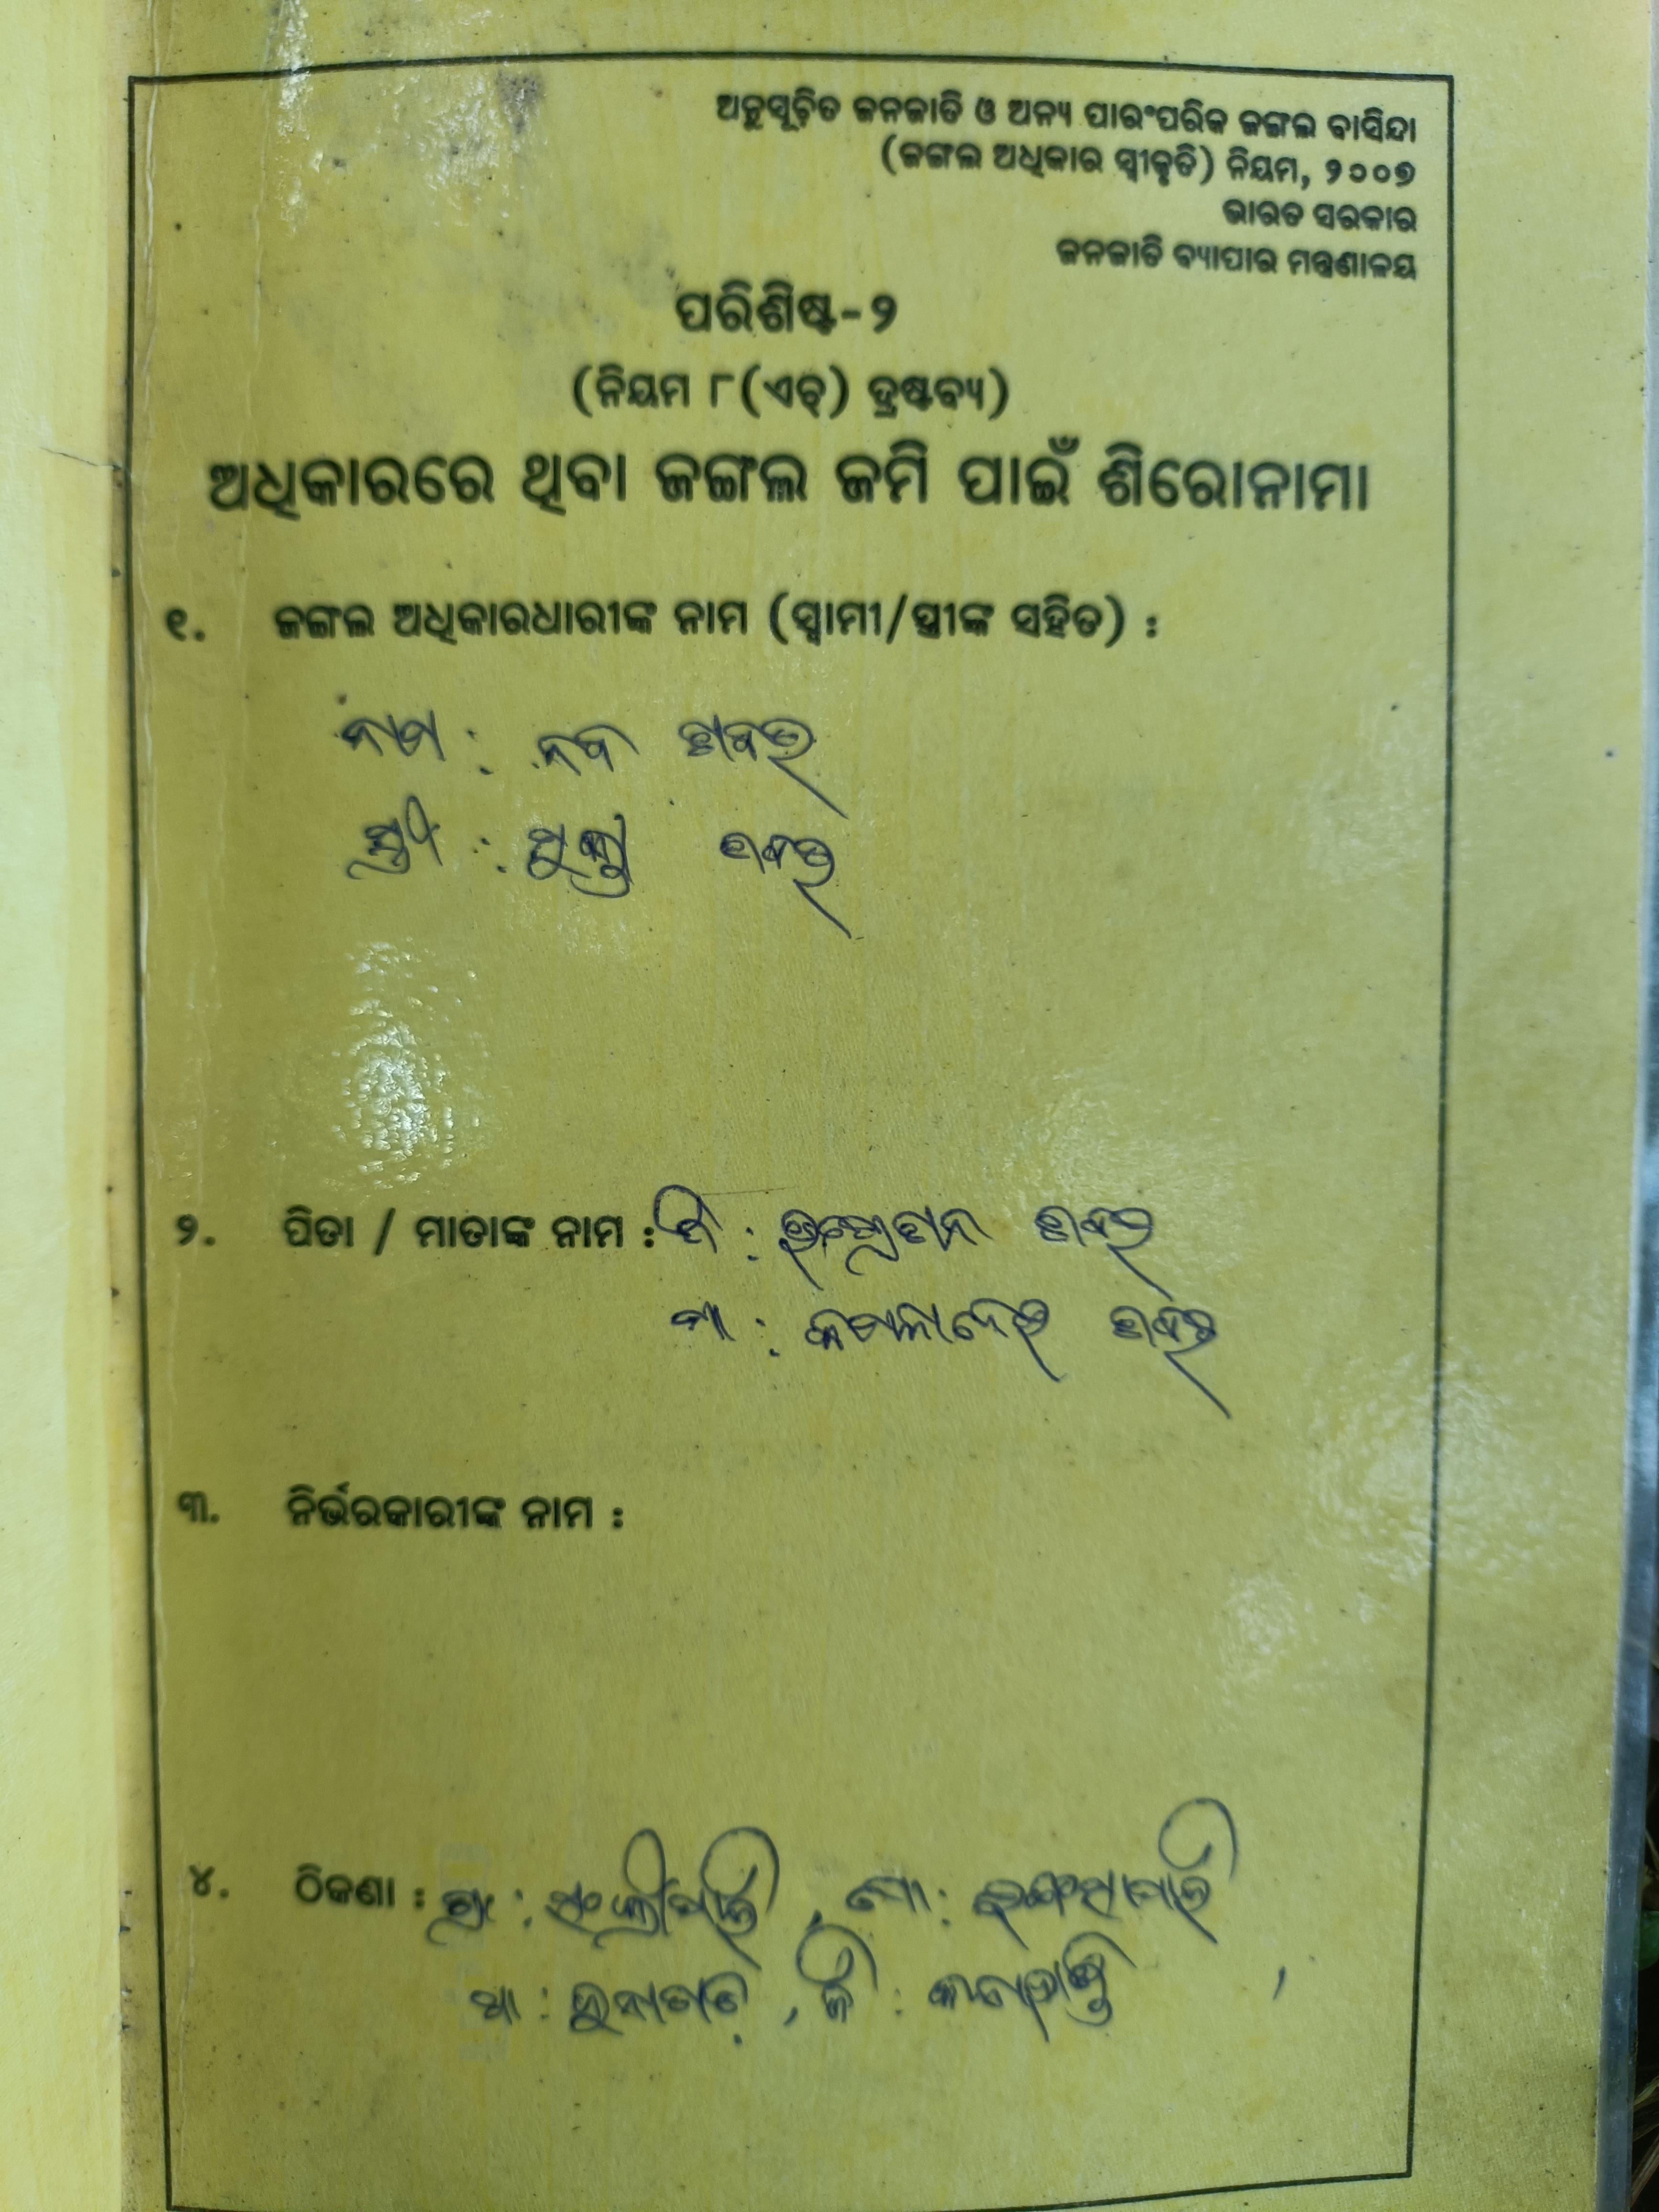 ଅନୁସୂଚିତ ଜନଜାତି ଓ ଅନ୍ୟ ପାରଂପରିକ ଜଙ୍ଗଲ ବାସିନ୍ଦା
(ଜଙ୍ଗଲ ଅଧିକାର ସ୍ୱୀକୃତି) ନିୟମ, ୨୦୦୭
ଭାରତ ସରକାର
ଜନଜାତି ବ୍ୟାପାର ମନ୍ତ୍ରଣାଳୟ
ପରିଶିଷ୍ଟ-୨
(ନିୟମ ୮(ଏଚ୍) ଦ୍ରଷ୍ଟବ୍ୟ)
ଅଧିକାରରେ ଥିବା ଜଙ୍ଗଲ ଜମି ପାଇଁ ଶିରୋନାମା
୧. ଜଙ୍ଗଲ ଅଧିକାରଧାରୀଙ୍କ ନାମ (ସ୍ୱାମୀ/ସ୍ତ୍ରୀଙ୍କ ସହିତ) :
ନାମ : ନବ
ସ୍ତ୍ରୀ :
୨. ପିତା / ମାତାଙ୍କ ନାମ : ପି :
ମା :
୩. ନିର୍ଭରକାରୀଙ୍କ ନାମ :
୪. ଠିକଣା : ଗ୍ରା : , ପୋ :
ଥା : , ଜି : କଳାହାଣ୍ଡି